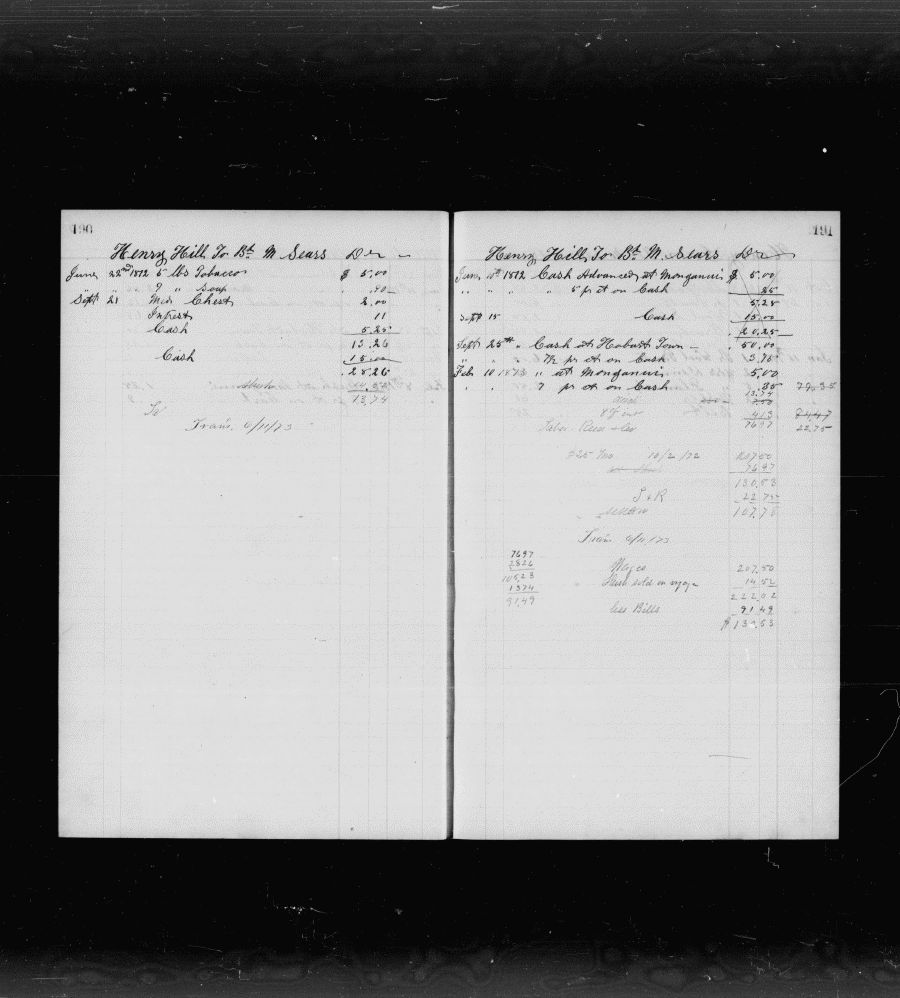 190
Henry Hill To Bk M. Sears Dr
June 22nd 1872 5 lbs Tobacco $ 5.00
" " " 9 " Soap .90
Sept 21 Med Chest 2.00
Intrest 11
Cash 5.25
13.26
Cash 15.00
28.26
13.74
To
Trans. 6/11/73
191
Henry Hill To Bk M. Sears Dr
June 11th 1872 Cash Advanced at Monganui $ 5.00
" " " " 5 pr ct on Cash 25
5.25
Sept 15 Cash 15.00
20.25
Sept 25th " Cash at Hobart Town 50.00
" " " 7½ pr ct on Cash 3.75
Feb 10 1873 " at Monganui 5.00
" " " 7 pr ct on Cash .35 79.35
13.74
4 13 74.47
76 97 22.75
$25 Mo. 10/2/72 207.50
76.97
130.53
S & R 22 75
107.78
Trans 6/11/73
7697
2826
10523
1374
9149
Wages 207.50
14 52
222 02
less Bills 91 49
$ 130.53